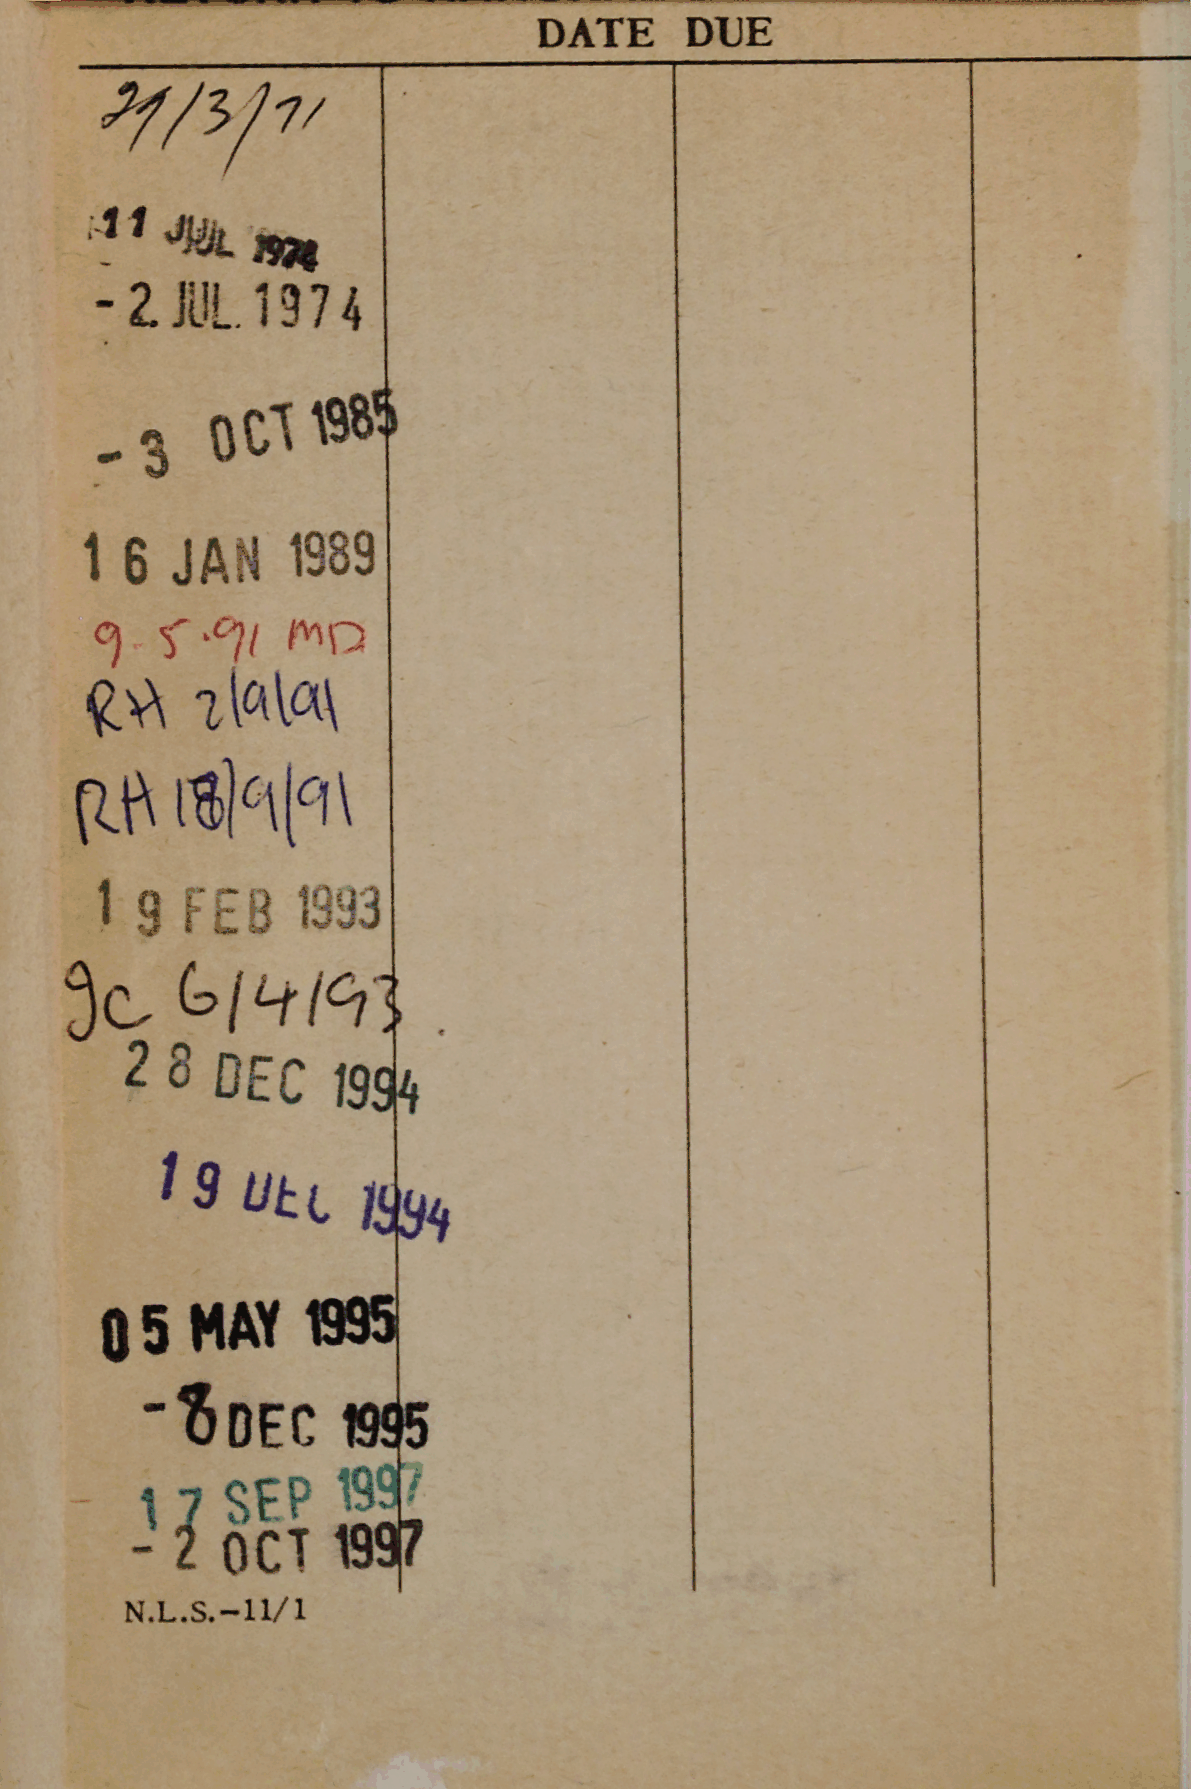 DATE DUE
29/3/71
11 JUL 1974
-2. JUL. 1974
-3 OCT 1985
16 JAN 1989
9.5.91 MD
RH 2/9/91
RH 18/9/91
19 FEB 1993
gc 6/4/93.
28 DEC 1994
19 DEC 1994
05 MAY 1995
-8 DEC 1995
17 SEP 1997
-2 OCT 1997
N.L.S.-11/1